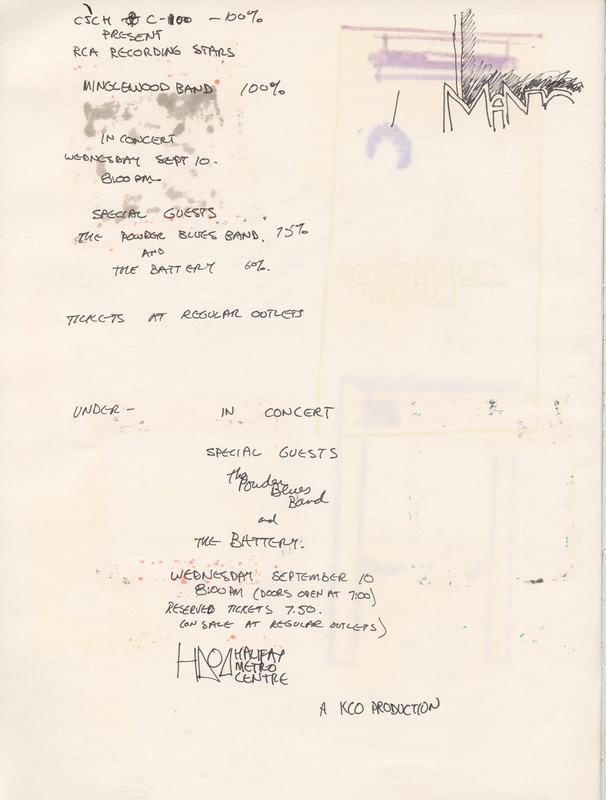 CJCH & C-100 - 100%
PRESENT
RCA RECORDING STARS
MINGLEWOOD BAND 100%
IN CONCERT
WEDNESDAY SEPT 10.
8:00 PM
SPECIAL GUESTS
THE POWDER BLUES BAND. 75%
AND
THE BATTERY 60%.
TICKETS AT REGULAR OUTLETS
UNDER - IN CONCERT
SPECIAL GUESTS
the Powder
Blues
Band
and
THE BATTERY.
WEDNESDAY SEPTEMBER 10
8:00 PM (DOORS OPEN AT 7:00)
RESERVED TICKETS 7.50.
(ON SALE AT REGULAR OUTLETS)
HALIFAX
METRO
CENTRE
A KCO PRODUCTION